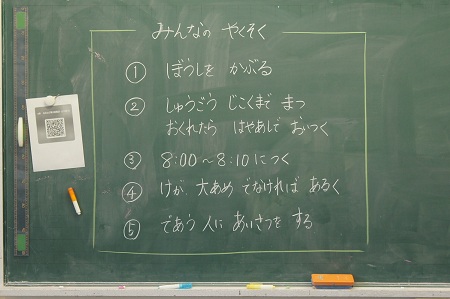 みんなの やくそく
① ぼうしを かぶる
② しゅうごう じこくまで まつ
おくれたら はやあしで おいつく
③ 8:00～8:10につく
④ けが、大あめ でなければ あるく
⑤ であう 人に あいさつを する